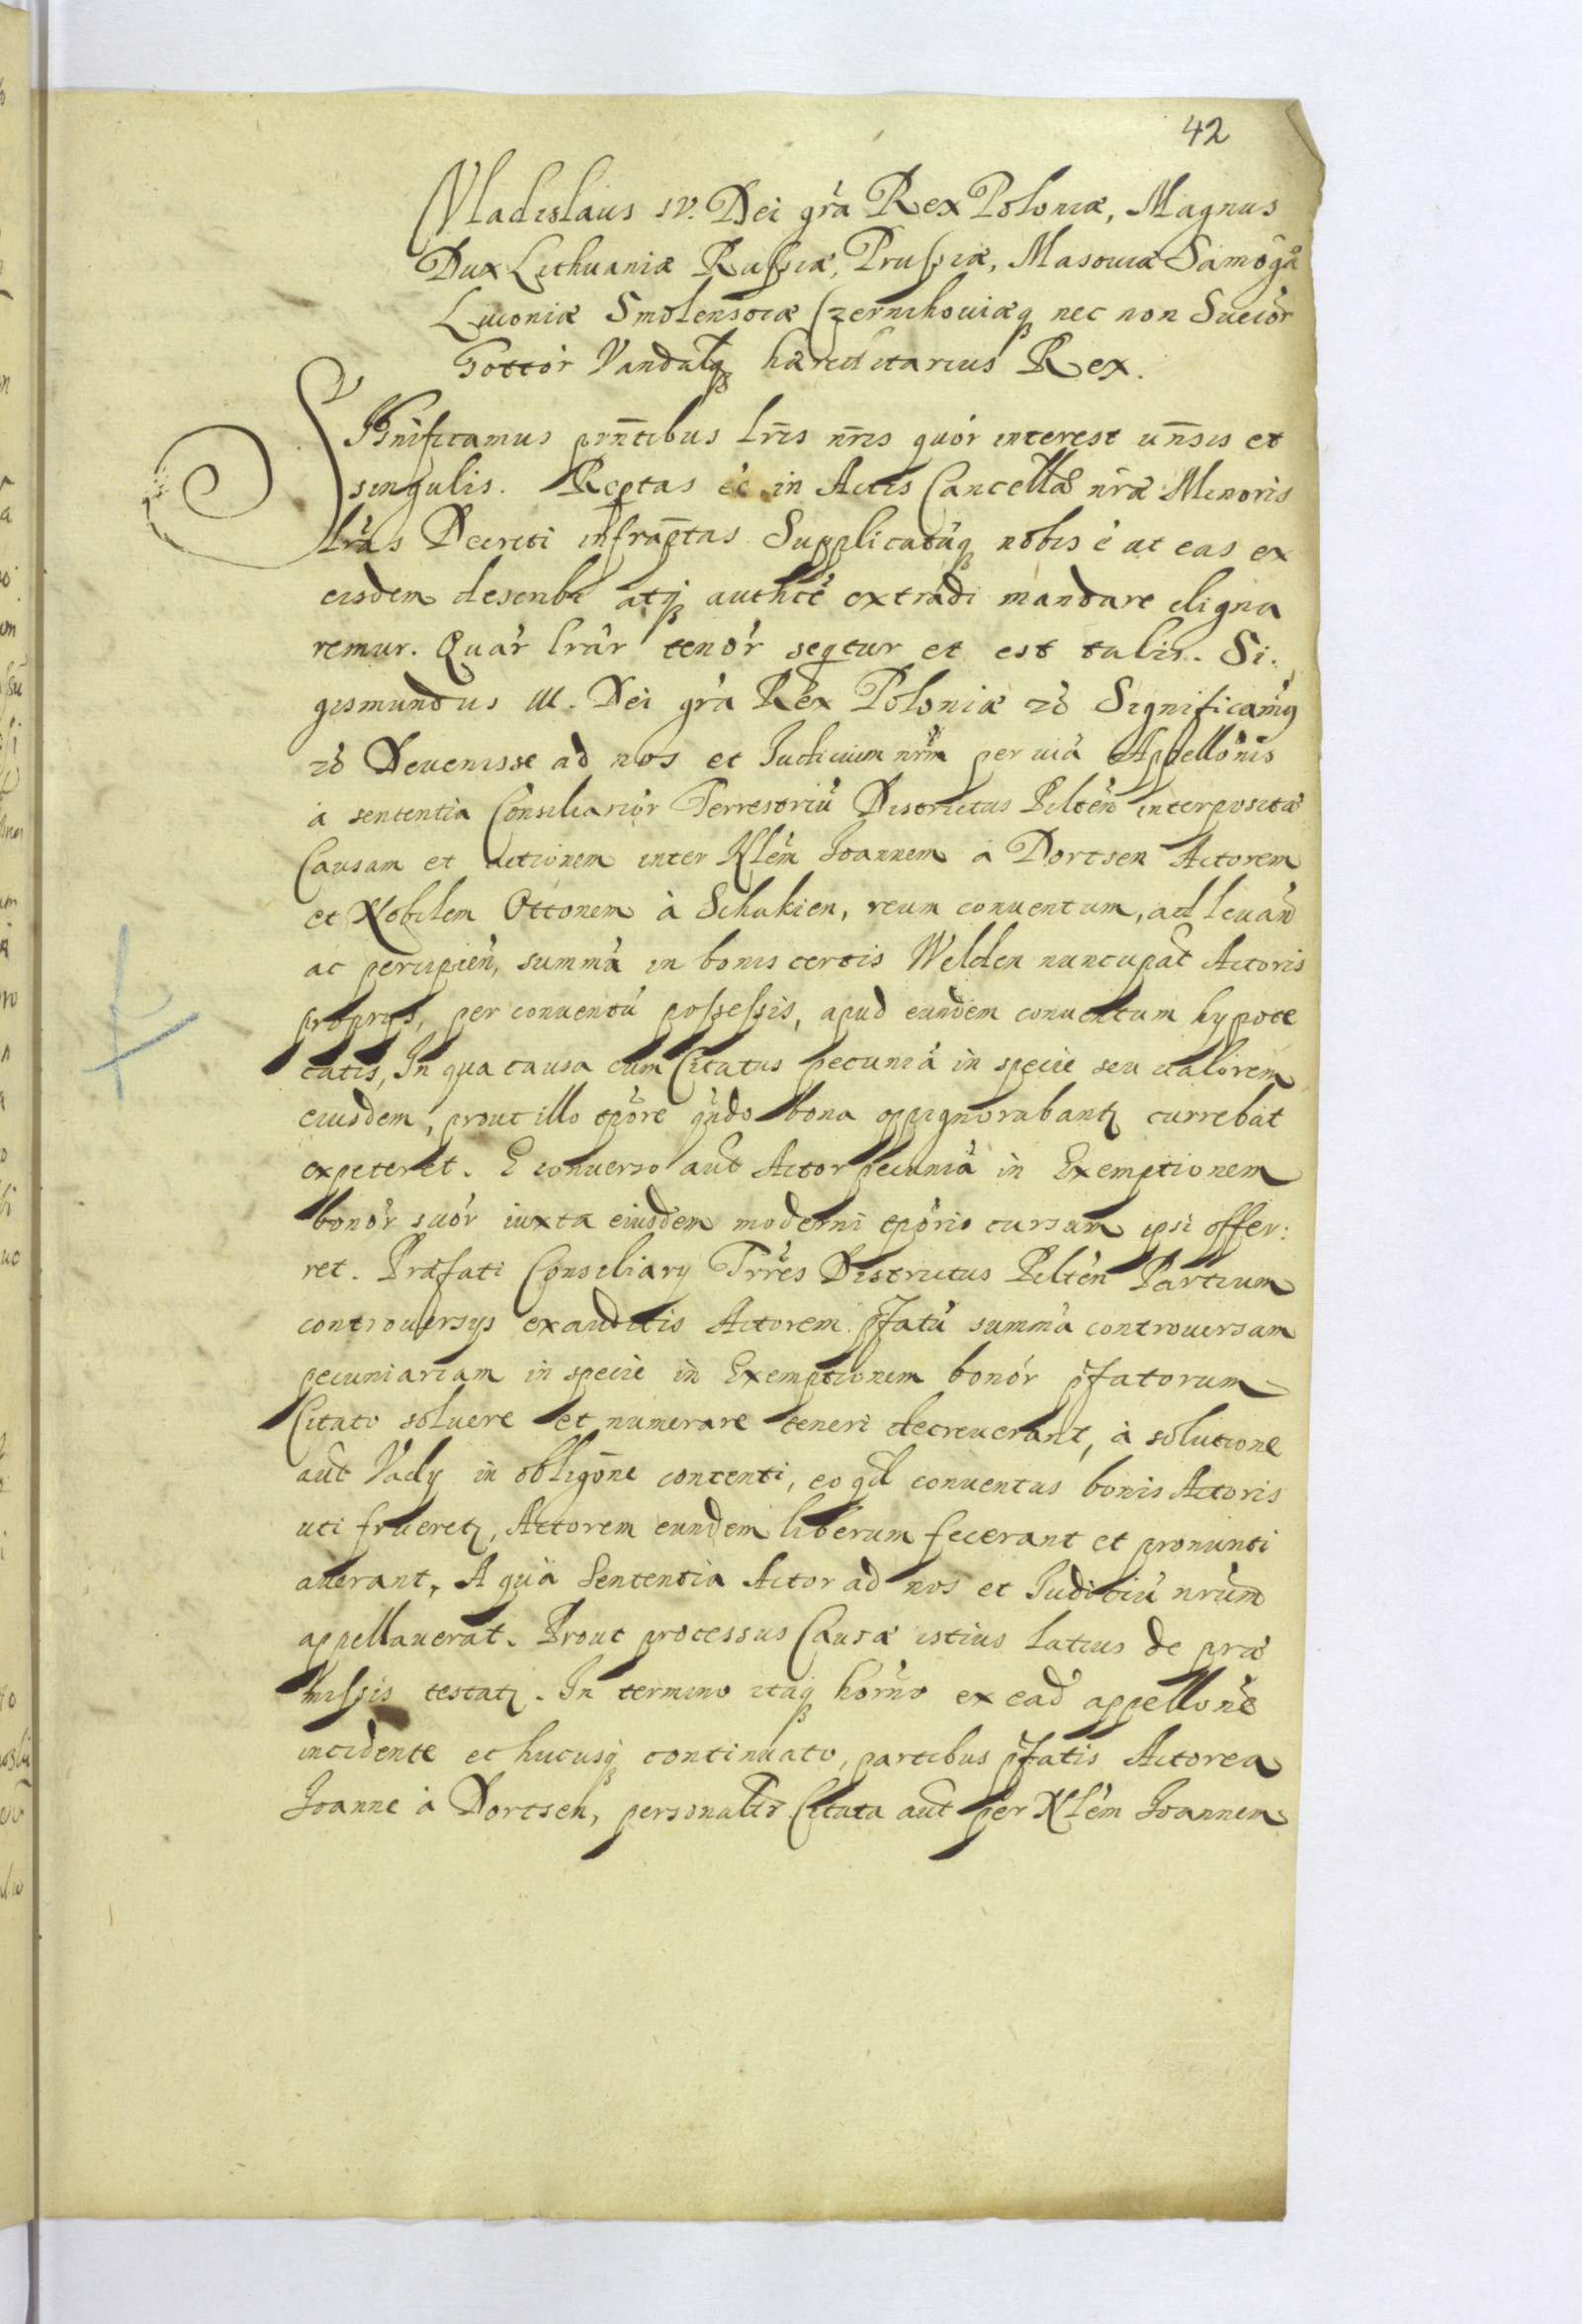 42
Vladislaus IV. Dei grã Rex Poloniæ, Magnus
Dux Lithuaniæ Russiæ, Prussiæ, Masouiæ Samogã
Liuoniæ Smolensciæ Czernihouiæq nec non Suecior
Gottor Vandalq hæreditarius Rex.
Significamus pñtibus lris nris quor interest uñsis et
singulis. Reptas ẽe in Actis Cancellæ nræ Minoris
lras Decreti infraptas Supplicatũq nobis ẽ ut eas ex
eisdem describi atq authce extradi mandare digna
remur. Quar lrar tenor seqtur et est talis. Si:
gismundus III. Dei grã Rex Poloniæ zc Significamq
zc Deuenisse ad nos et Iudicium nrm per uiã Appellonis
a sententia Consiliarior Terrestriũ Districtus Pilten interpositæ
Causam et actionem inter Nlem Ioannem a Dortsen Actorem
et Nobilem Ottonem à Schakien, reum conuentum, ad leuañ
ac percipieñ, summã in bonis certis Welden nuncupat Actoris
proprys, per conuentũ possessis, apud eundem conuentum hypote
catis, In qua causa cum Citatus pecuniã in specie seu ualorem
eiusdem, prout illo tpore qndo bona oppignorabantʒ currebat
expeteret. E conuerso aut Actor pecuniã in Exemptionem
bonor suor iuxta eiusdem moderni tporis cursum ipsi offer:
ret. Præfati Consiliary Trres Districtus Pilten Partium
controuersys exauditis Actorem pfatũ summã controuersam
pecuniariam in specie in Exemptionem bonor pfatorum
Citato soluere et numerare teneri decreuerant, à solutione
aut Vady in obligõne contenti, eo qd conuentus bonis Actoris
uti frueretʒ, Actorem eundem liberum fecerant et pronunti
auerant. A qua Sententia Actor ad nos et Iuditiũ nrum
appellauerat. Prout processus Causæ istius latius de præ
missis testatʒ. In termino itaq horno ex ead appellone
incidente et hucusq continuato, partibus pfatis Actorea
Ioanne à Dortsen, personaltr Citata aut per Nlem Ioannem